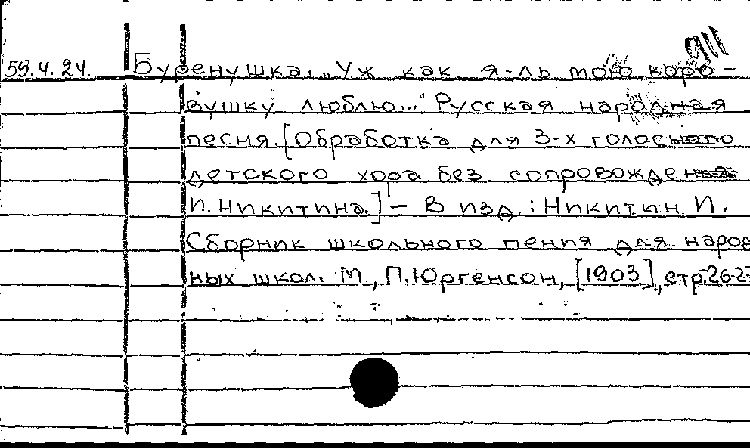 911
59.4.24. Буренушка. „Уж как я-ль мою коро-
вушку люблю..." Русская народная
песня. [Обработка для 3-х голосного
детского хора без сопровождения
И. Никитина.] – В изд.: Никитин И.
Сборник школьного пения для народ
ных школ. М., П. Юргенсон, [1903], стр. 26-2